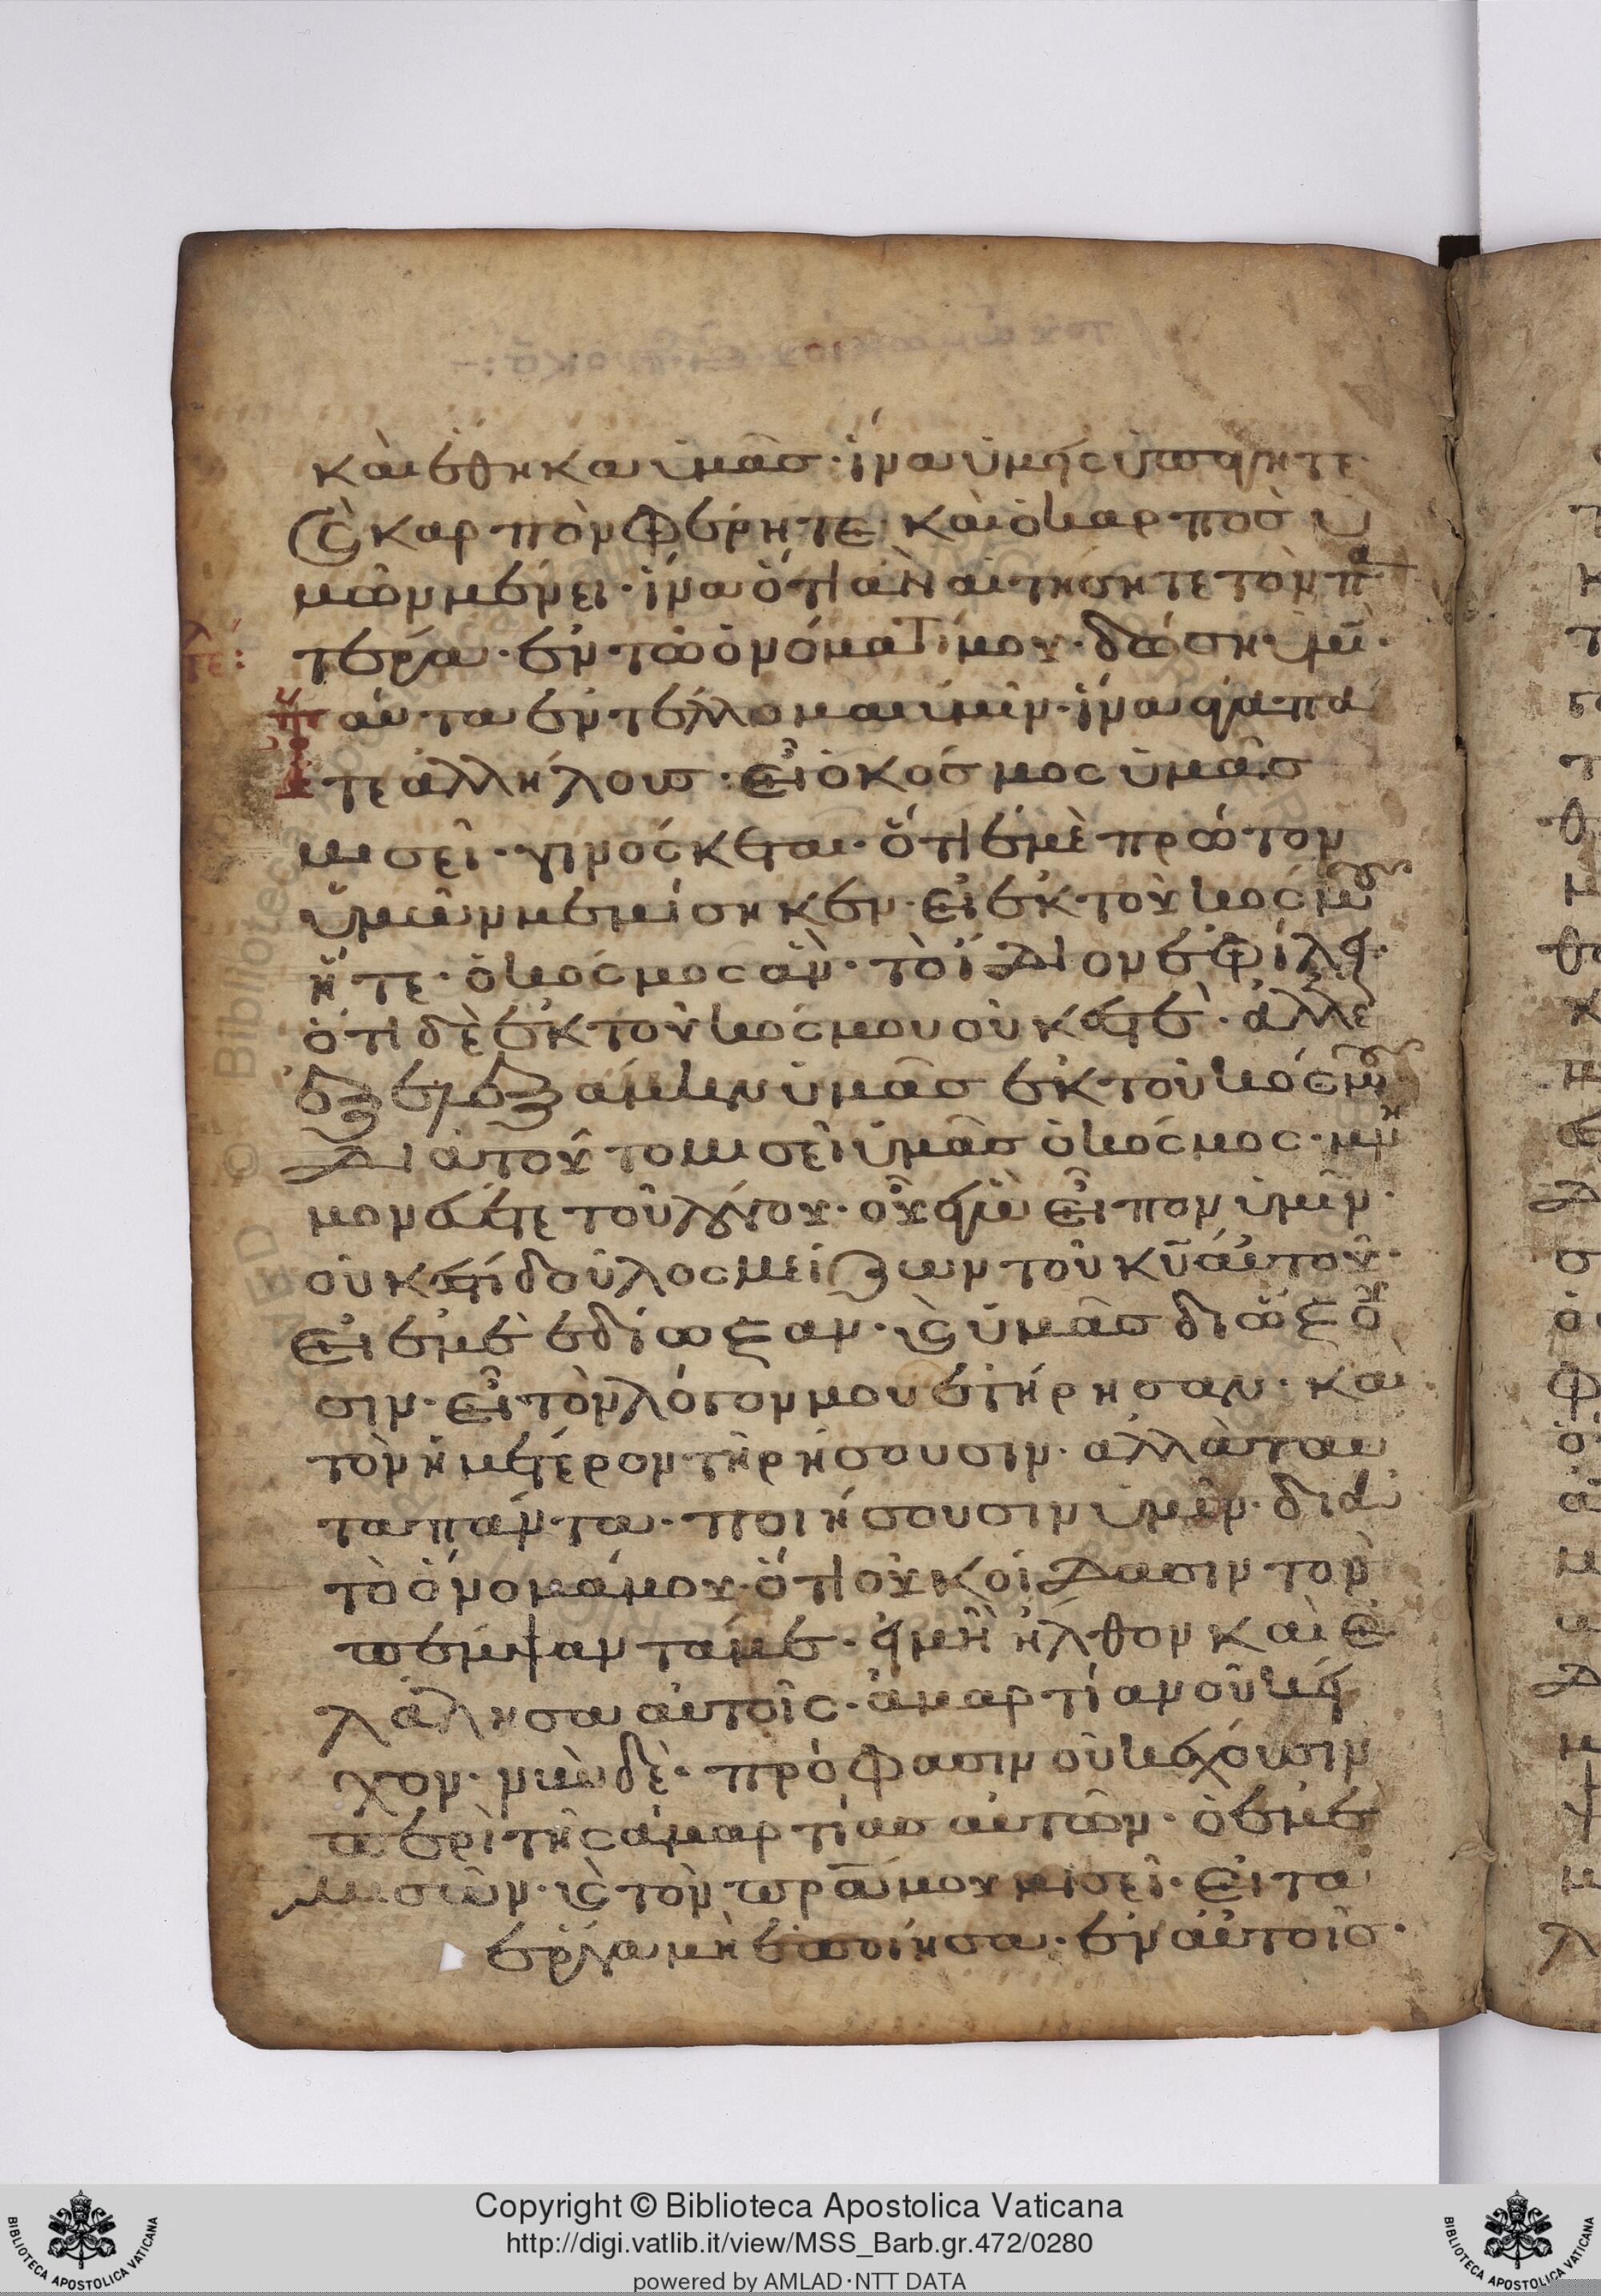 και έθηκα υμασ · ίνα υμής υπαγητε
(ϛ καρπὸν φέρητε · και ο καρποσ ὑ
μῶν μένει · ίνα ὅτι ἀν αιτησητε τὸν πα
τέρα · εν τῶ ὀνόματί μου · δώση υμῖ ·
τε:
ταύτα εντέλλομαι υμῖν · ίνα αγαπα
τε ἀλλήλουσ · ει ὁ κόσμος ὑμᾶσ
μισεῖ · γινόσκεται · ὅτι ἐμὲ πρώτον
ὑμῶν μεμίσηκεν · ει εκ τοῦ κοσμου
ἦτε · ὁ κόσμος ἀν · τὸ ίδιον εφίλει ·
ὅτι δὲ εκ τοῦ κόσμου ουκ εστέ · ἀλλε
ξελεξάμην ὑμᾶσ εκ τοῦ κόσμου
διατοῦτο μισεῖ υμᾶσ ὁ κόσμος · μνη
μονέυετε τοῦ λόγου · οὗ εγὼ είπον υμῖν ·
ουκ εστι δοῦλος μείζων τοῦ κῡ αυτοῦ ·
Ει εμὲ εδίωξαν · ϛ ὑμᾶσ διώξου
σιν · ει τὸν λόγον μου ετήρησαν · και
τὸν ημέτερον τηρήσουσιν · αλλὰ ταυ
τα πάντα · ποιήσουσιν υμῖν · δια
τὸ όνομά μου · ὅτι ουκ οίδασιν τον
πέμψαντά με · ει μὴ ήλθον και ε
λάλησα αυτοῖς · ἁμαρτίαν οὐκ εί
χον · νῦν δὲ · πρόφασιν οὐκ έχουσιν
περὶ τῆς ἁμαρτίασ αυτῶν · ὁ εμὲ
μισῶν · ϛ τὸν πρ̅α μου μισεῖ · ει τα
έργα μὴ εποίησα · εν αυτοῖσ ·
Copyright © Biblioteca Apostolica Vaticana
http://digi.vatlib.it/view/MSS_Barb.gr.472/0280
powered by AMLAD·NTT DATA
BIBLIOTECA APOSTOLICA VATICANA
BIBLIOTECA APOSTOLICA VATICANA